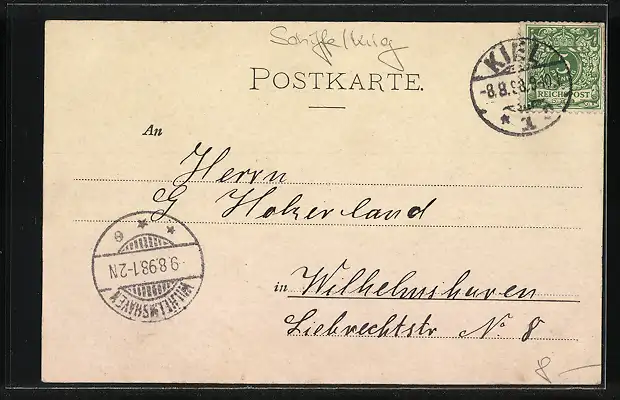 POSTKARTE.
KIEL
-8.8.98.
1
5
REICHSPOST
An
Herrn
G Holzerland
in Wilhelmshaven
Liebrechtstr No 8
-9.8.98.1-2N
WILHELMSHAVEN
8 —